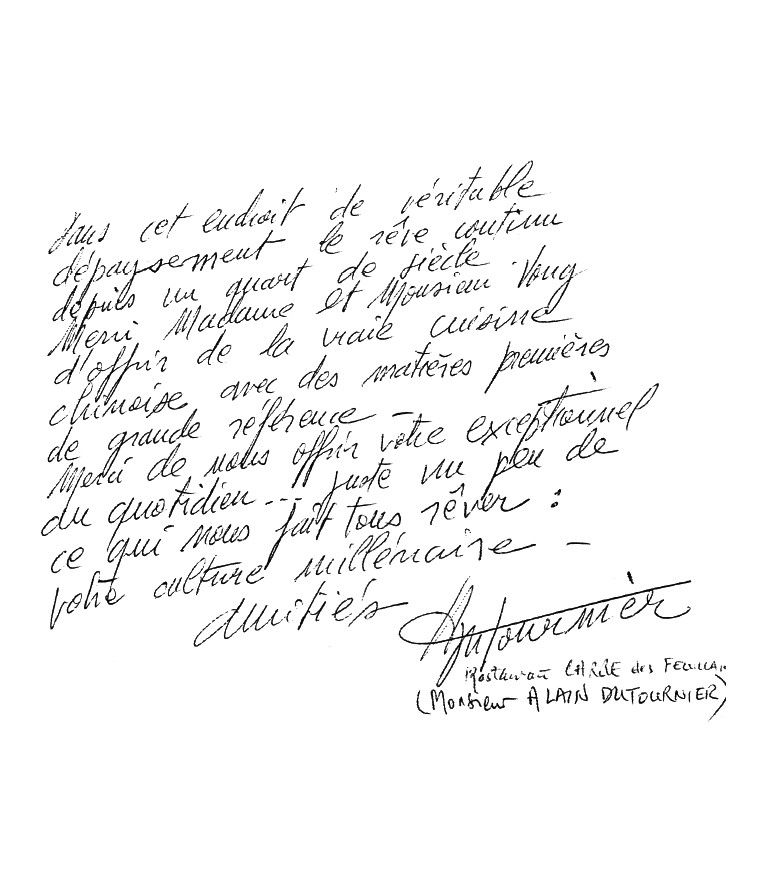 Dans cet endroit de véritable
dépaysement le rêve continu
depuis un quart de siècle
Merci Madame et Monsieur Vong
d'offrir de la vraie cuisine
chinoise avec des matières premières
de grande référence -
Merci de nous offrir votre exceptionnel
du quotidien... juste un peu de
ce qui nous fait tous rêver :
votre culture millénaire -
Amitiés
ADutournier
Restaurant CARRÉ des FEUILLAN
(Monsieur ALAIN DUTOURNIER)